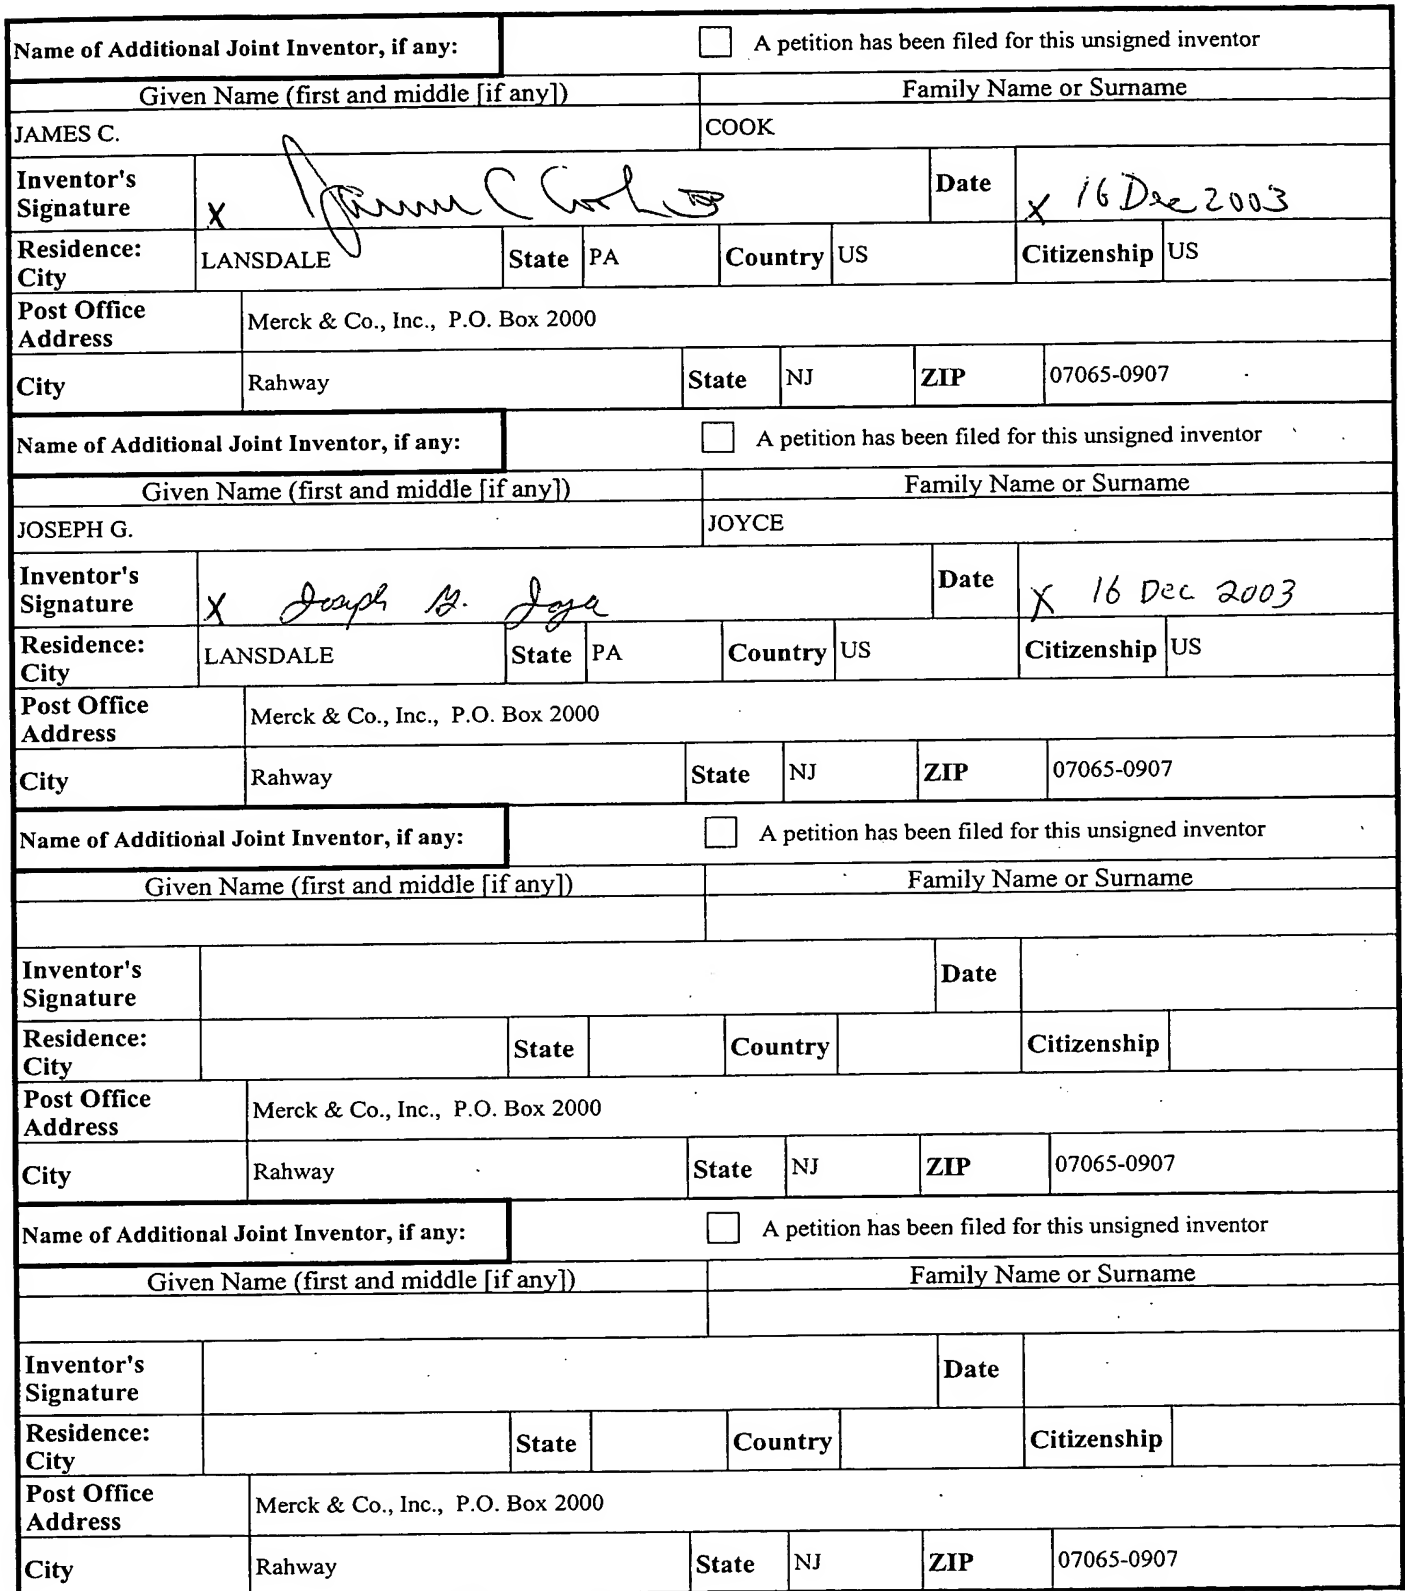 Name of Additional Joint Inventor, if any: A petition has been filed for this unsigned inventor
Given Name (first and middle [if any]) Family Name or Surname
JAMES C. COOK
Inventor's Signature X James C Cook Date X 16 Dec 2003
Residence: City LANSDALE State PA Country US Citizenship US
Post Office Address Merck & Co., Inc., P.O. Box 2000
City Rahway State NJ ZIP 07065-0907
Name of Additional Joint Inventor, if any: A petition has been filed for this unsigned inventor
Given Name (first and middle [if any]) Family Name or Surname
JOSEPH G. JOYCE
Inventor's Signature X Joseph G. Joyce Date X 16 Dec 2003
Residence: City LANSDALE State PA Country US Citizenship US
Post Office Address Merck & Co., Inc., P.O. Box 2000
City Rahway State NJ ZIP 07065-0907
Name of Additional Joint Inventor, if any: A petition has been filed for this unsigned inventor
Given Name (first and middle [if any]) Family Name or Surname
Inventor's Signature Date
Residence: City State Country Citizenship
Post Office Address Merck & Co., Inc., P.O. Box 2000
City Rahway State NJ ZIP 07065-0907
Name of Additional Joint Inventor, if any: A petition has been filed for this unsigned inventor
Given Name (first and middle [if any]) Family Name or Surname
Inventor's Signature Date
Residence: City State Country Citizenship
Post Office Address Merck & Co., Inc., P.O. Box 2000
City Rahway State NJ ZIP 07065-0907